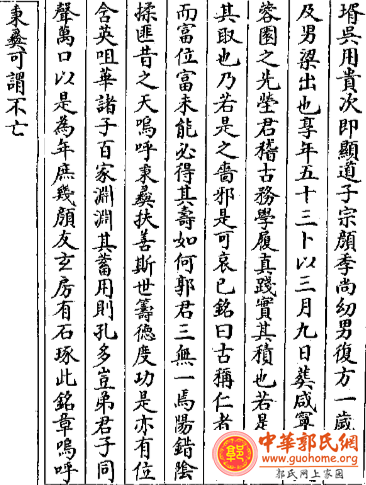 壻吳用貴次即顯道子宗顏季尚幼男復方一歲
及男梁出也享年五十三卜以三月九日葬咸寧
蓉園之先塋君稽古務學履真踐實其積也若是
其取也乃若是之嗇邪是可哀已銘曰古稱仁者
而富位富未能必得其壽如何郭君三無一焉陽錯陰
揉匪昔之天嗚呼秉彝扶善斯世籌德度功是亦有位
含英咀華諸子百家淵淵其蓄用則孔多豈弟君子同
聲萬口以是為年庶幾顏友玄房有石琢此銘章嗚呼
秉彝可謂不亡
中華郭氏網
www.guoshome.com
郭氏网上家园